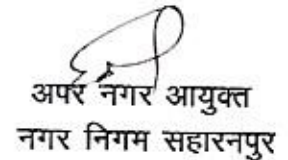 अपर नगर आयुक्त
नगर निगम सहारनपुर